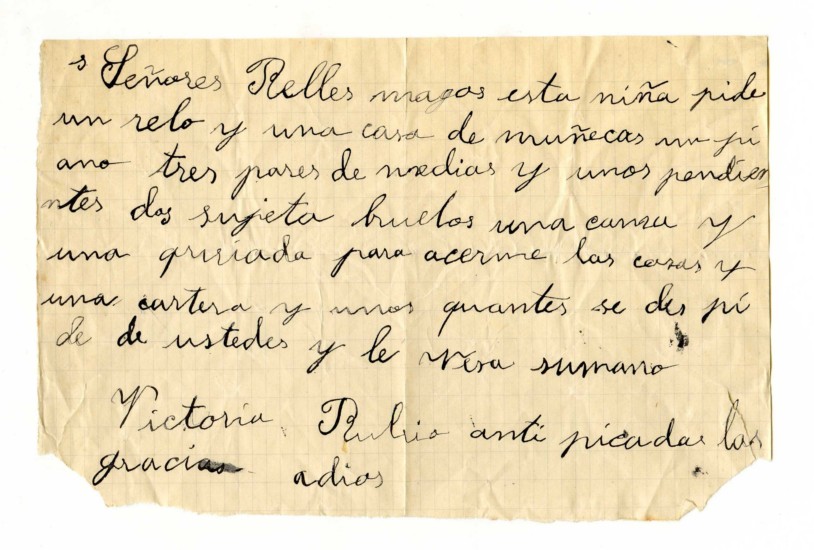 s Señores Relles magos esta niña pide
un relo y una casa de muñecas un pi
ano tres pares de medias y unos pendien
ntes dos sujeta buelos una cama y
una para acerme las cosas y
una cartera y unos quantes se des pi
de de ustedes y le vesa sumano
Victoria Rubio anti picadas las
gracias adios